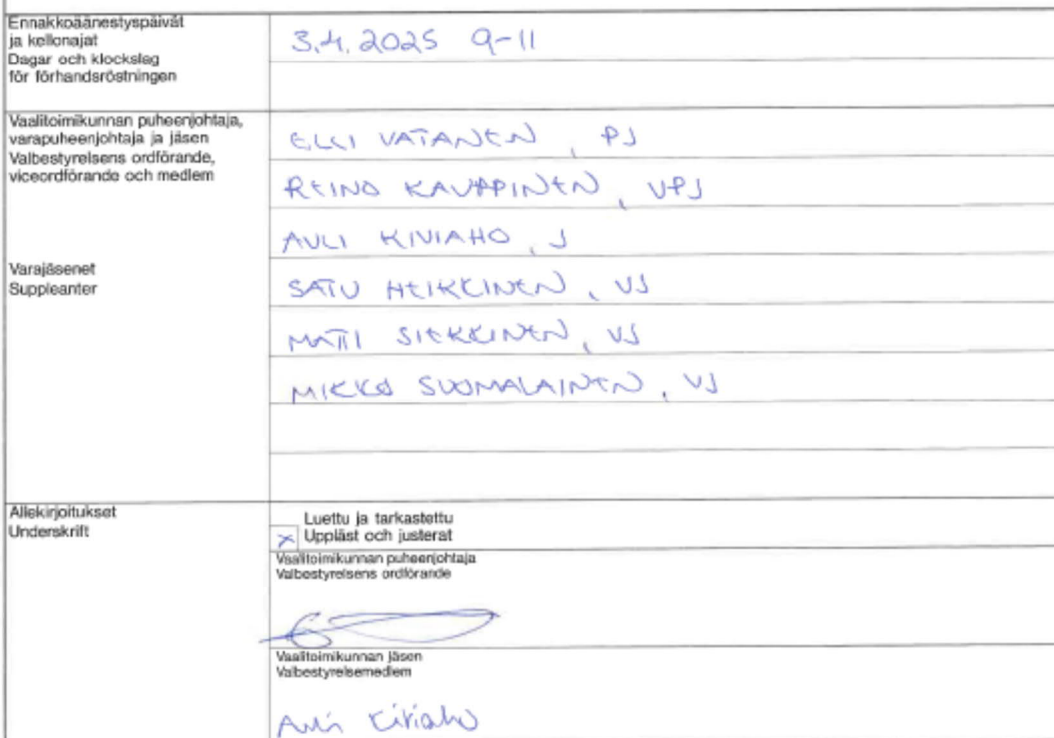 Ennakkoäänestyspäivät
ja kellonajat
Dagar och klockslag
för förhandsröstningen
3.4.2025 9-11
Vaalitoimikunnan puheenjohtaja,
varapuheenjohtaja ja jäsen
Valbestyrelsens ordförande,
viceordförande och medlem
ELLI VATANEN, PJ
REINO KAUPPINEN, VPJ
AULI KIVIAHO, J
Varajäsenet
Suppleanter
SATU HEIKKINEN, VJ
MATTI SIEKKINEN, VJ
MIKKO SUOMALAINEN, VJ
Allekirjoitukset
Underskrift
Luettu ja tarkastettu
x Uppläst och justerat
Vaalitoimikunnan puheenjohtaja
Valbestyrelsens ordförande
Vaalitoimikunnan jäsen
Valbestyrelsemedlem
Auli Kiviaho